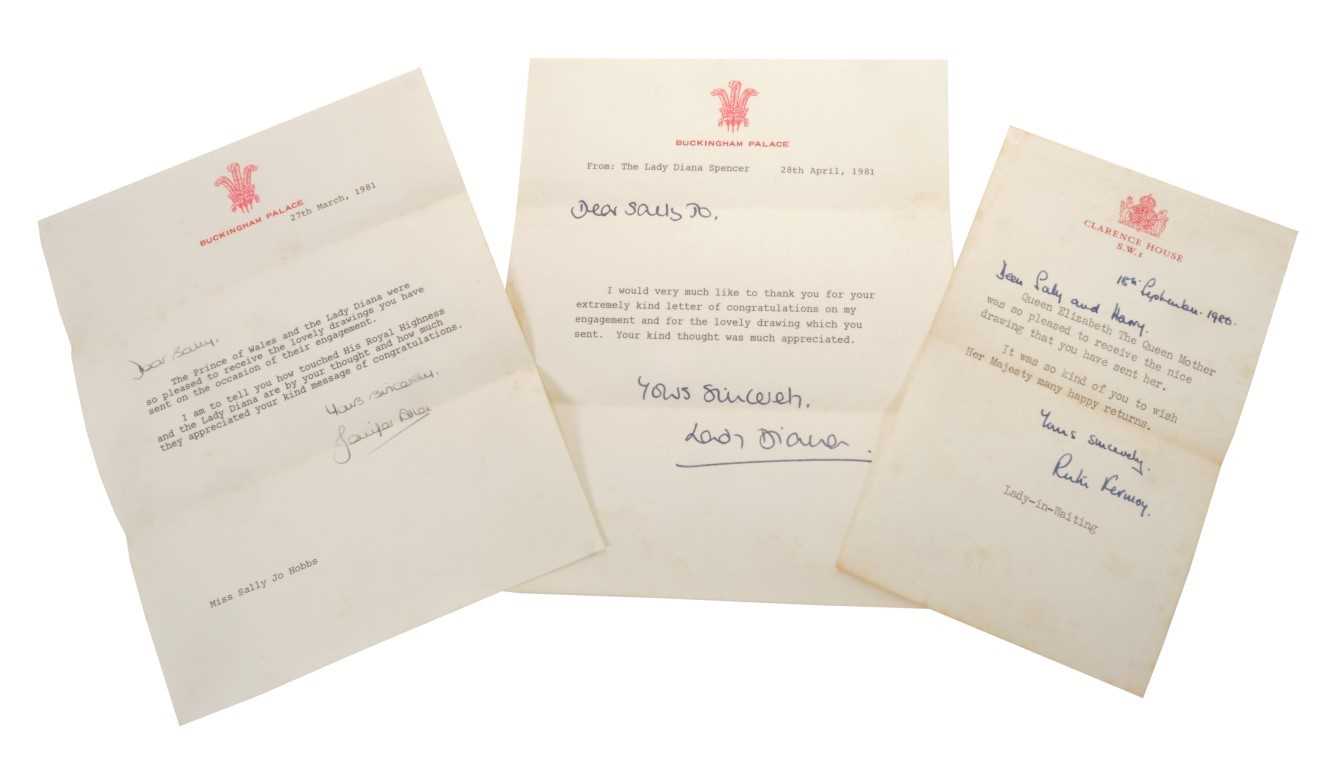 BUCKINGHAM PALACE
27th March, 1981
Dear Sally,
The Prince of Wales and the Lady Diana were
so pleased to receive the lovely drawings you have
sent on the occasion of their engagement.
I am to tell you how touched His Royal Highness
and the Lady Diana are by your thought and how much
they appreciated your kind message of congratulations.
Yours sincerely,
Miss Sally Jo Hobbs
BUCKINGHAM PALACE
From: The Lady Diana Spencer 28th April, 1981
Dear Sally Jo,
I would very much like to thank you for your
extremely kind letter of congratulations on my
engagement and for the lovely drawing which you
sent. Your kind thought was much appreciated.
Yours sincerely,
Lady Diana
CLARENCE HOUSE
S.W.1
18th September. 1980.
Dear Sally and Harry.
Queen Elizabeth The Queen Mother
was so pleased to receive the nice
drawing that you have sent her.
It was so kind of you to wish
Her Majesty many happy returns.
Yours sincerely.
Ruth Fermoy.
Lady-in-Waiting